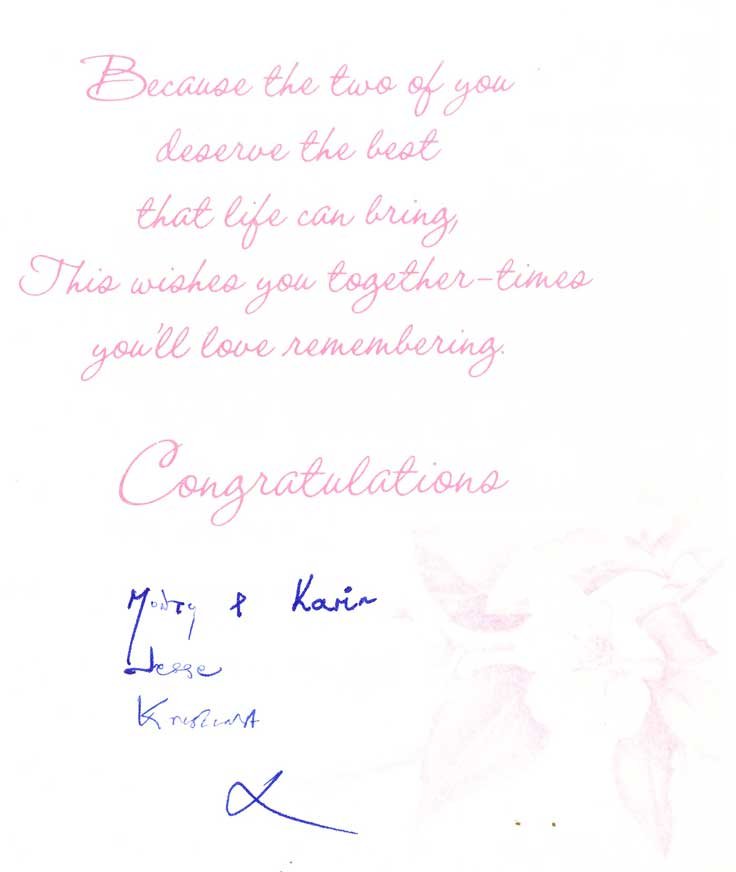 Because the two of you
deserve the best
that life can bring,
This wishes you together-times
you'll love remembering.
Congratulations
Monty & Karin
Jesse
Kristina